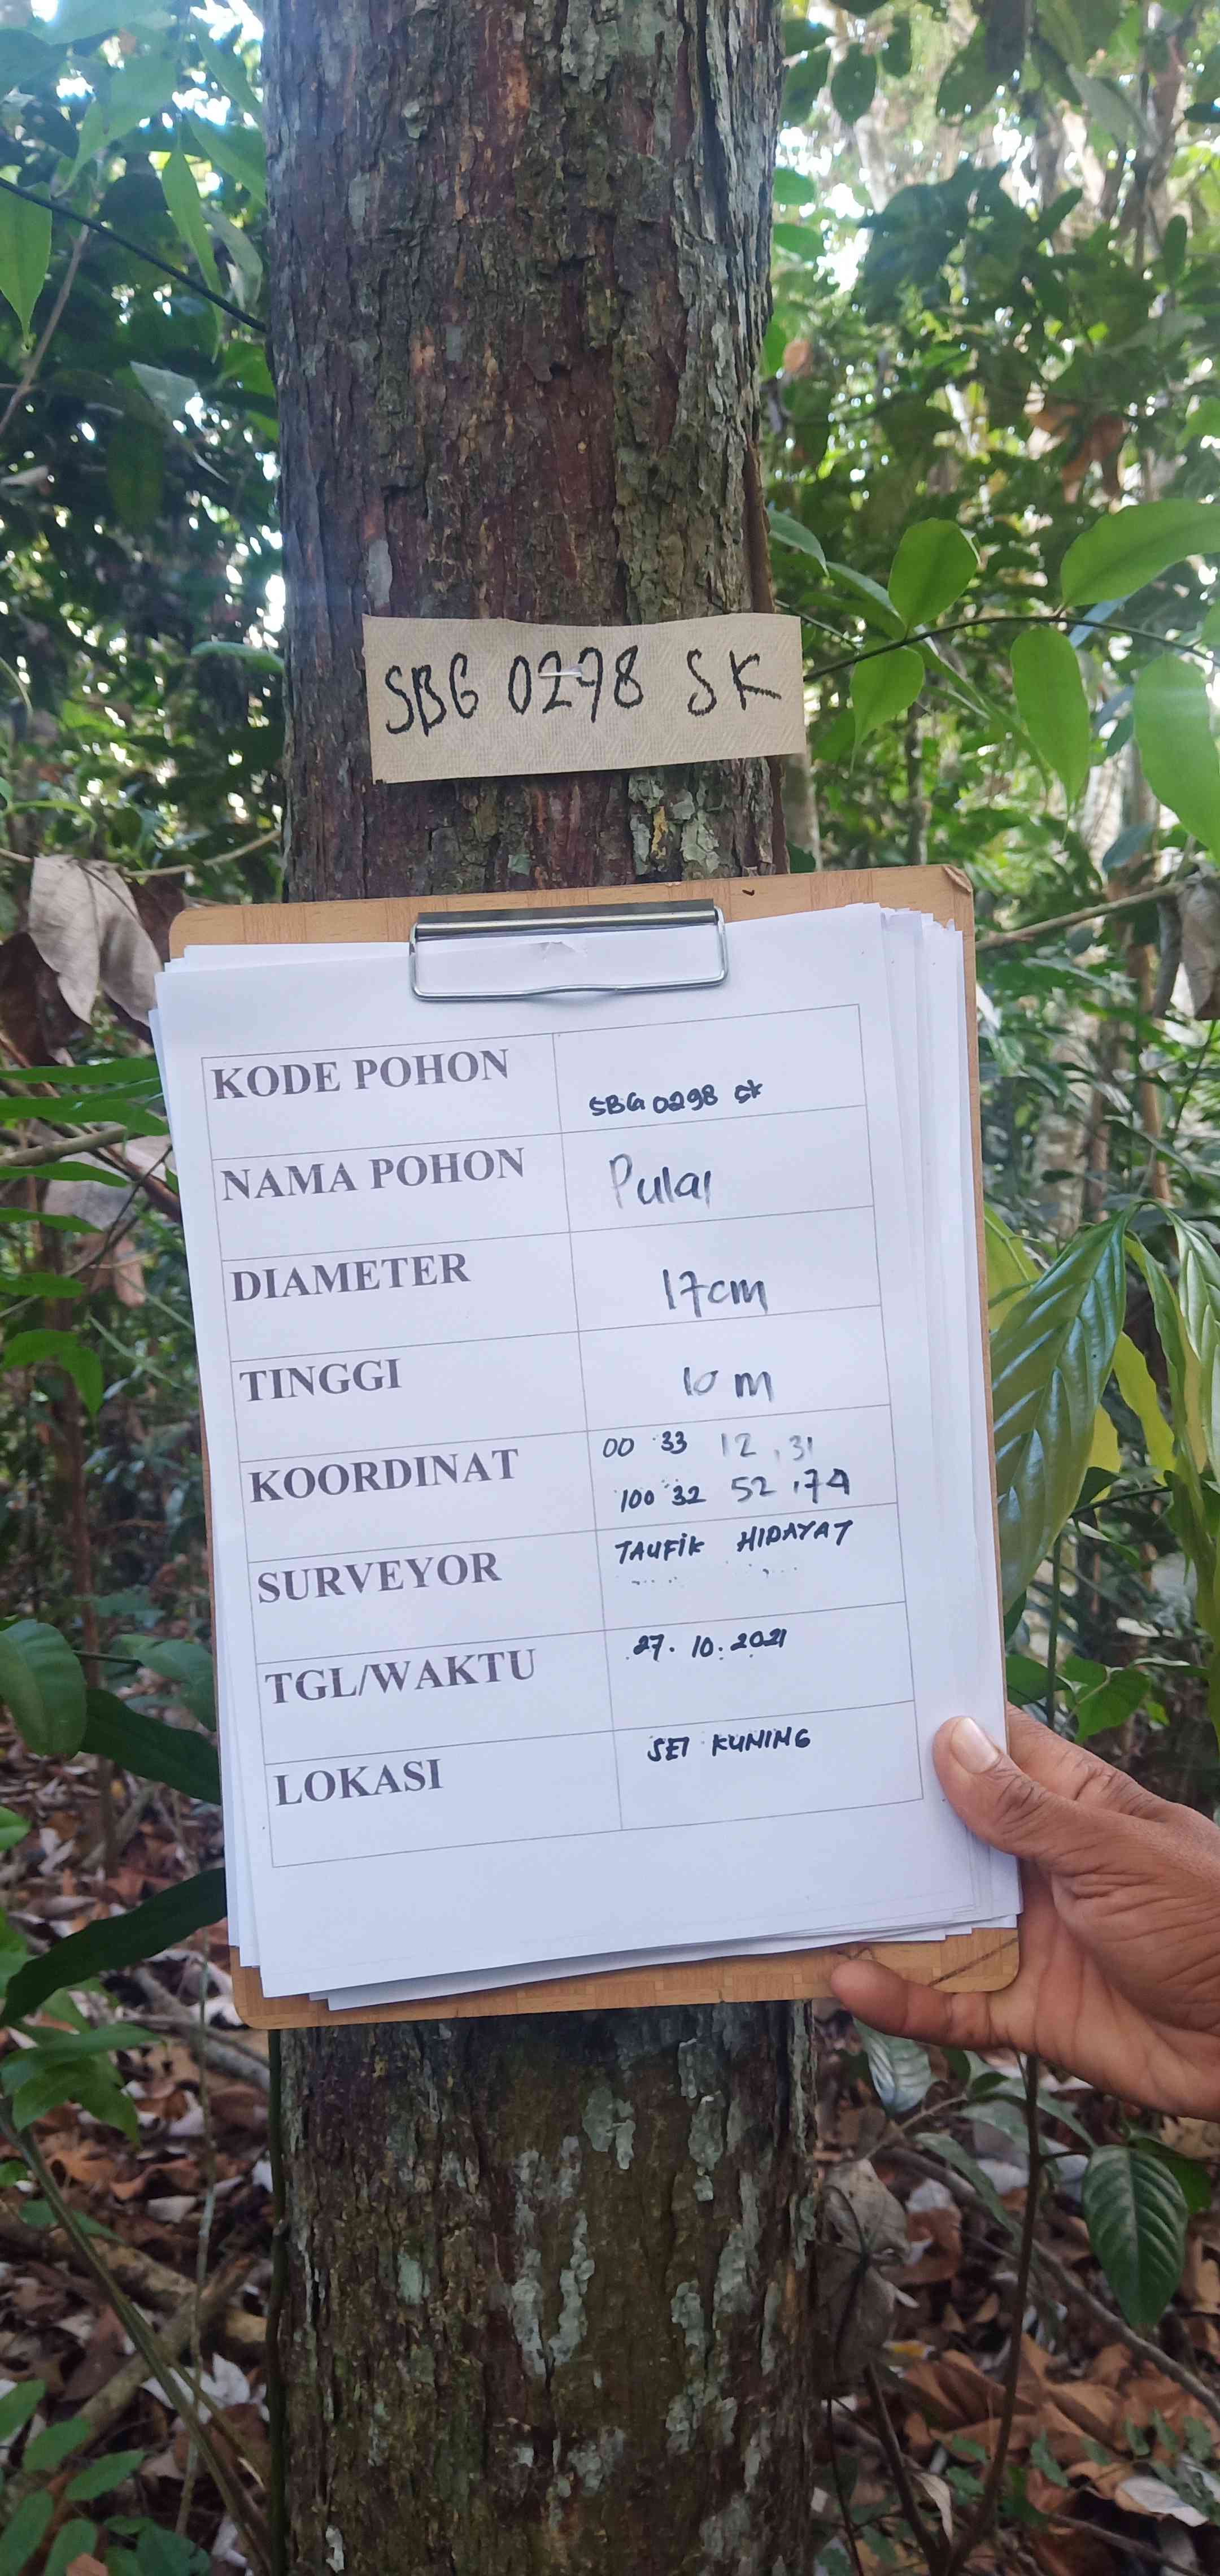 SBG 0278 SK
KODE POHON
SBG 0298 SK
NAMA POHON
Pulai
DIAMETER
17cm
TINGGI
10 m
KOORDINAT
00 33 12,31
100 32 52,74
SURVEYOR
TAUFIK HIDAYAT
TGL/WAKTU
27.10.2021
LOKASI
SEI KUNING